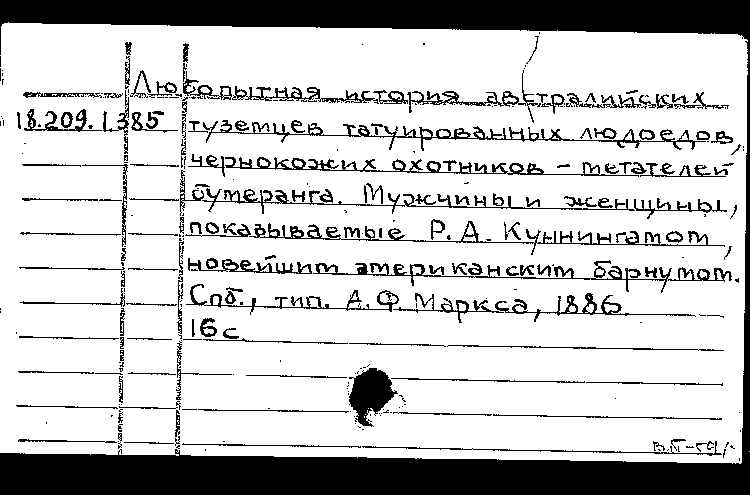 Любопытная история австралийских
18.209.1.385. туземцев татуированных людоедов,
чернокожих охотников – метателей
бумеранга. Мужчины и женщины,
показываемые Р. А. Куннингамом,
новейшим американским барнумом.
Спб., тип. А.Ф. Маркса, 1886.
16 с.